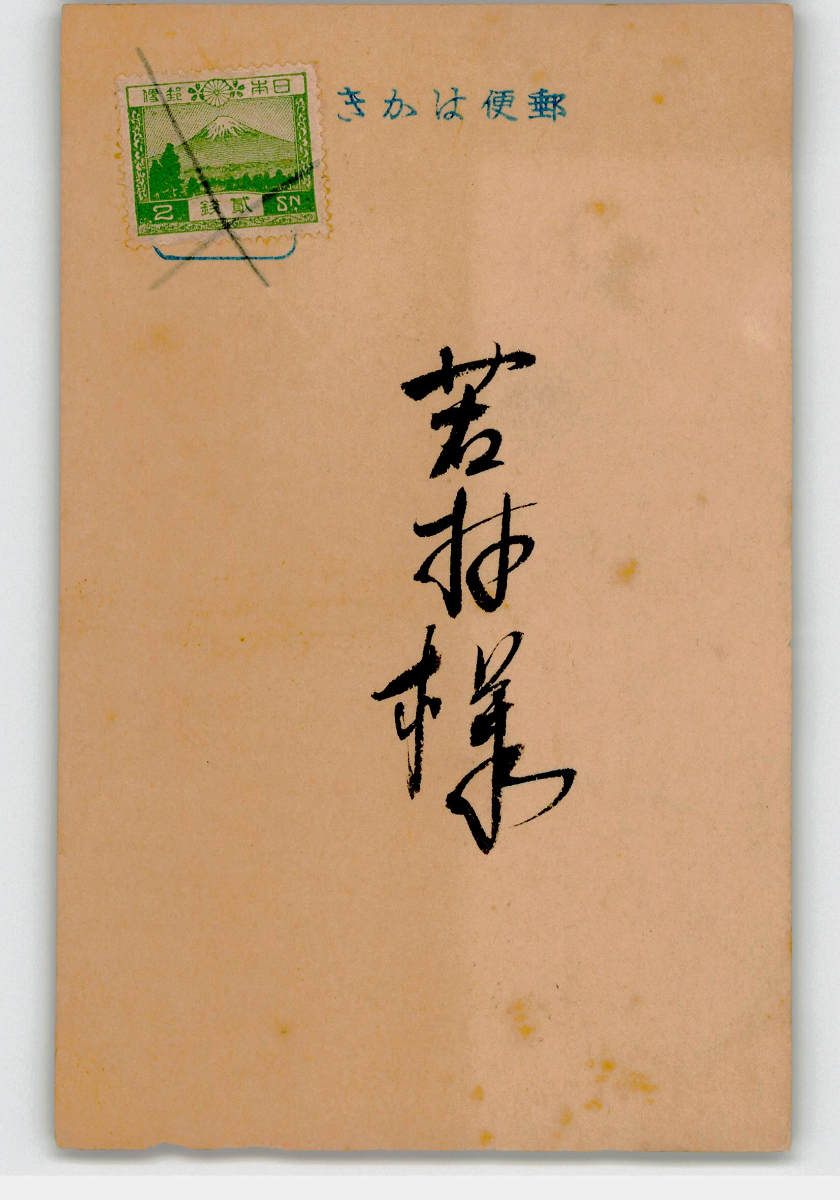 郵便はかき
日本郵便
2 貳錢 SN
若林様